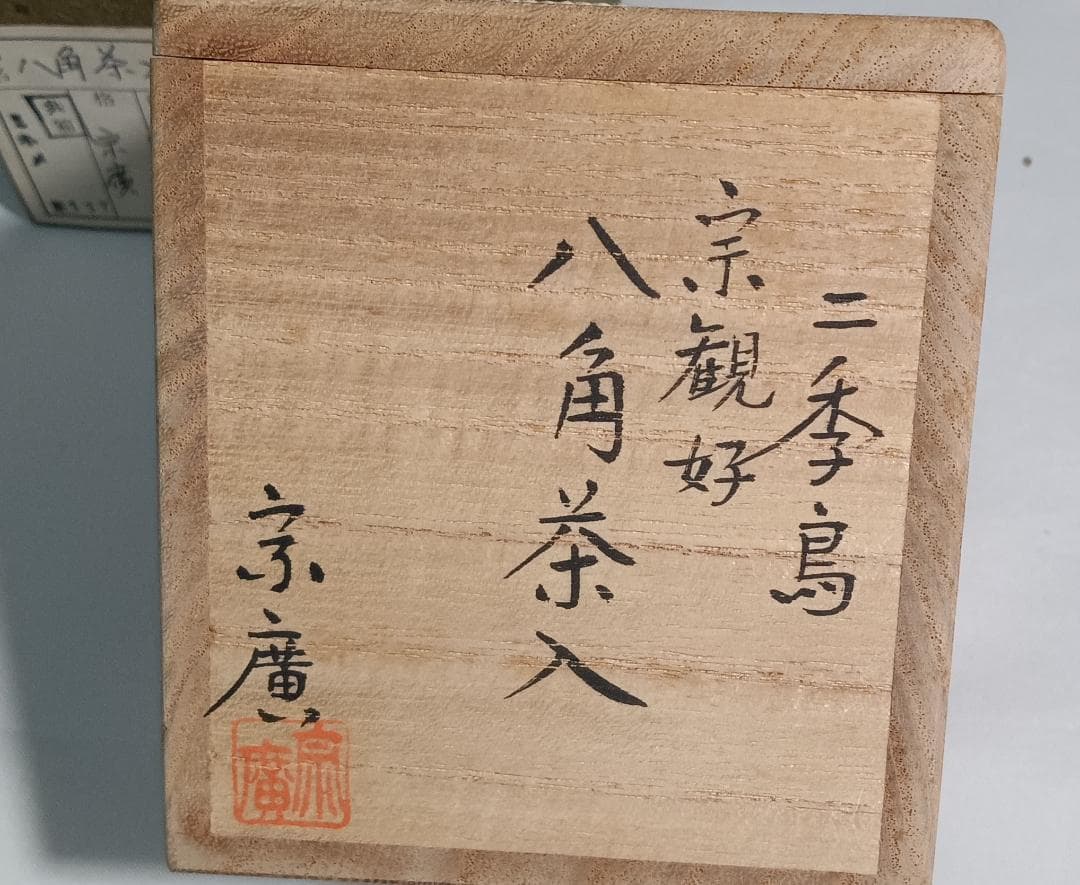 二季鳥
宗観好
八角茶入
宗廣
宗廣
八角茶
宗廣